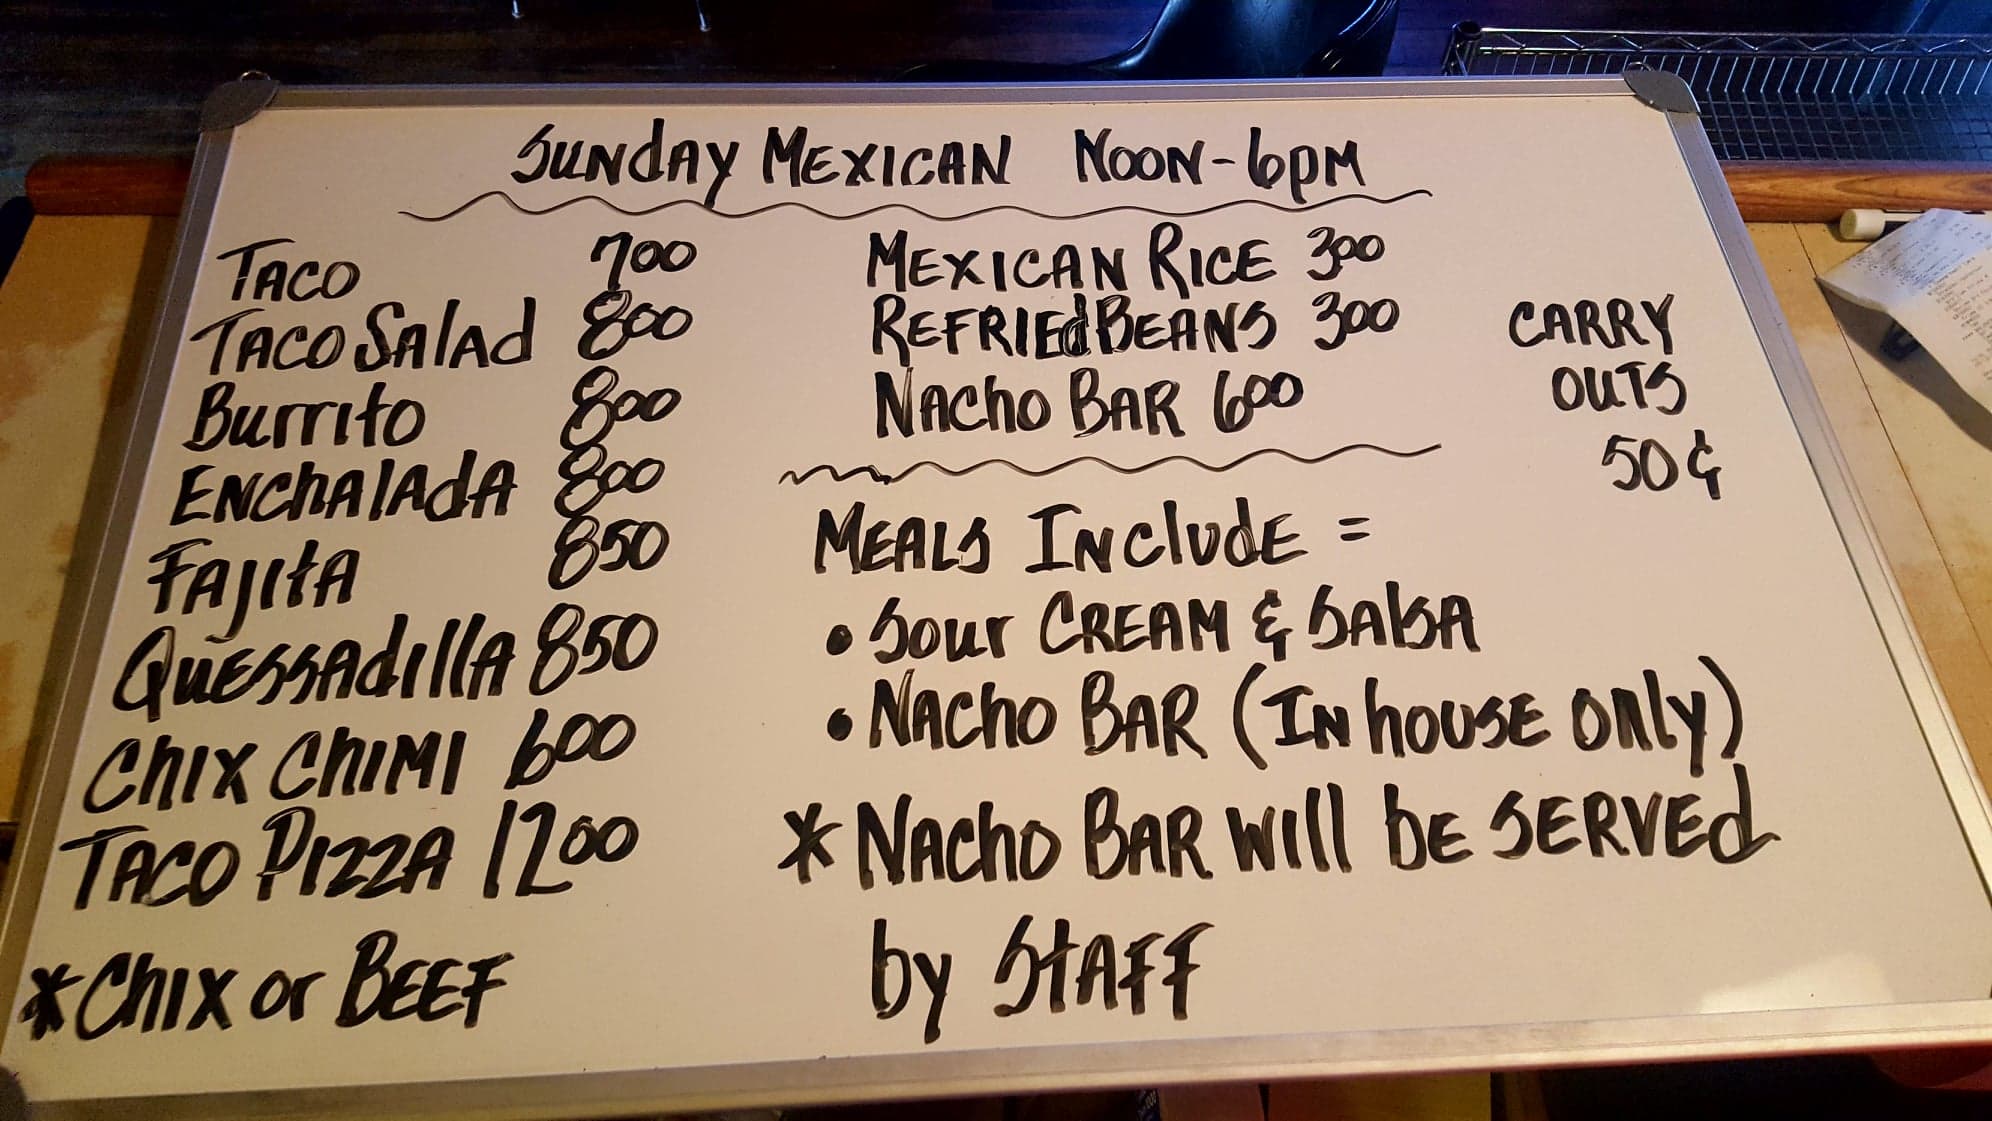 Sunday Mexican Noon-6pm
Taco 700
Taco Salad 800
Burrito 800
Enchalada 800
Fajita 850
Quessadilla 850
Chix Chimi 600
Taco Pizza 1200
*Chix or Beef
Mexican Rice 300
Refried Beans 300
Nacho Bar 600
Carry
outs
50¢
Meals Include =
• Sour Cream & Salsa
• Nacho Bar (In house only)
* Nacho Bar will be served
by Staff